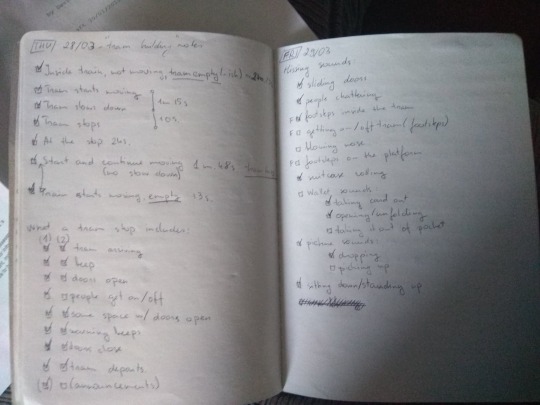 THU 28/03 - "team building" notes
Inside train, not moving, tram empty
Tram starts moving
Tram slows down 1m 15s
Tram stops 10s
At the stop 24s.
Start and continue moving 1m 48s
(no slow down)
Tram starts moving, empty 13s.
What a tram stop includes:
(1) (2)
tram arriving
beep
doors open
people get on/off
some space w/ doors open
warning beeps
doors close
tram departs
(announcements)
FRI 29/03
Missing sounds:
sliding doors
people chattering
footsteps inside the tram
getting on/off tram (footsteps)
blowing nose
footsteps on the platform
suitcase rolling
wallet sounds
taking card out
opening/unfolding
taking it out of pocket
phone sounds:
dropping
picking up
sitting down/standing up